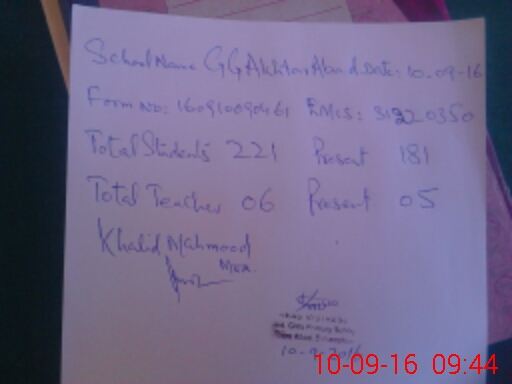 School Name GG Akhtar Abad Date: 10-09-16
Form No: 160910090461 EMIS: 31220350
Total Students 221 Present 181
Total Teacher 06 Present 05
Khalid Mahmood
MEA.
10-9-2016
10-09-16 09:44